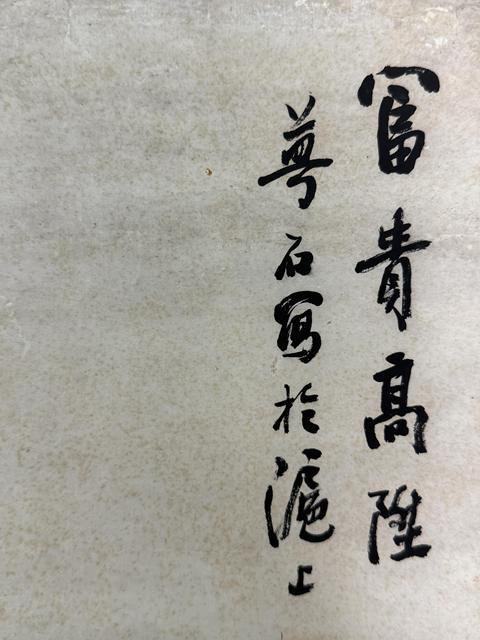 富貴高陞
萼石寫於滬上